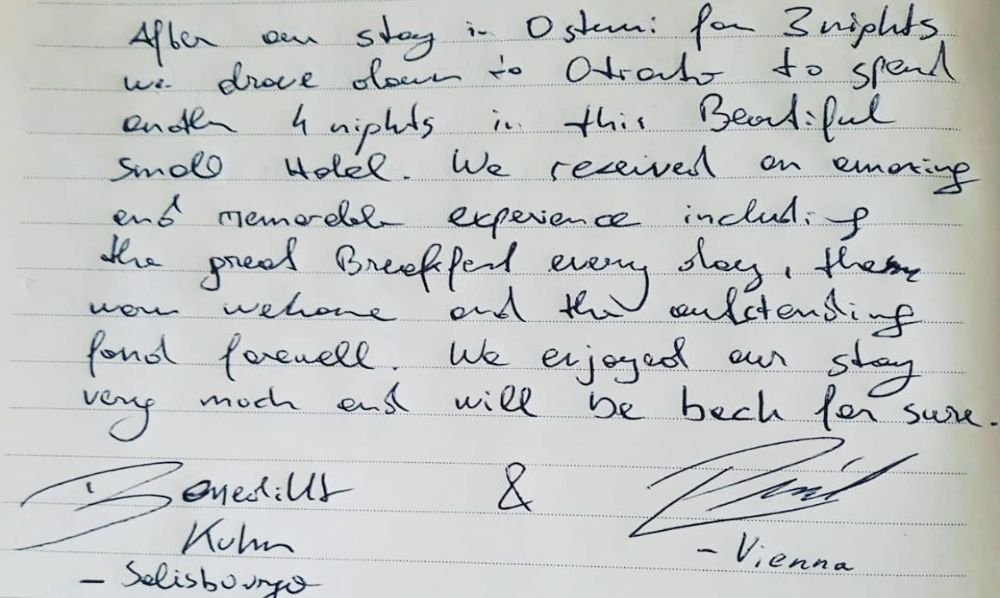 After our stay in Ostuni for 3 nights
we drove down to Otranto to spend
another 4 nights in this Beautiful
small Hotel. We received an amazing
and memorable experience including
the great Breakfast every day, the
warm welcome and the outstanding
fond farewell. We enjoyed our stay
very much and will be back for sure.
Benedikt &
Kuhn
- Vienna
- Salisbourgo